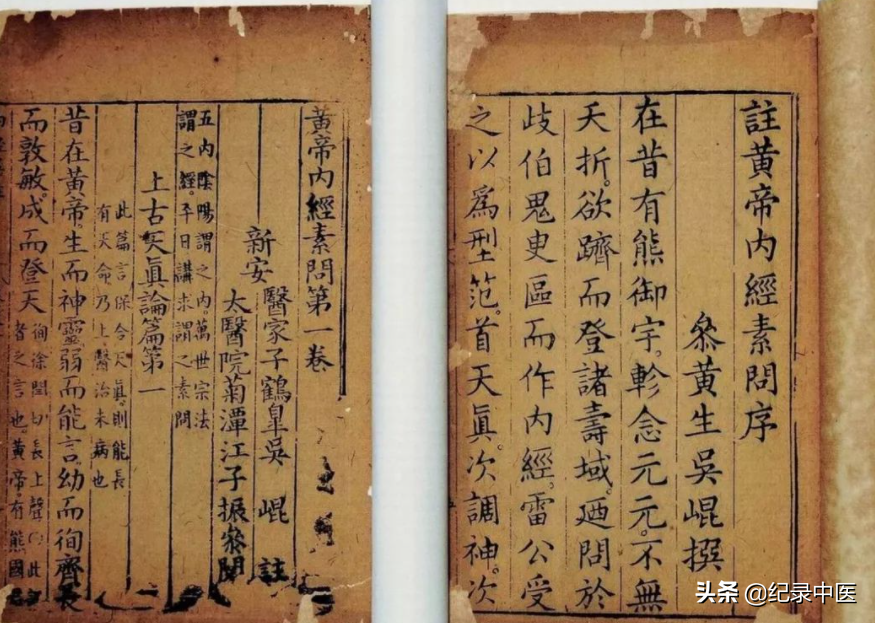 註黃帝內經素問序
叅黃生吳崐撰
在昔有熊御宇。軫念元元。不無
夭折。欲躋而登諸壽域。廼問於
歧伯鬼臾區而作內經。雷公受
之以爲型范。首天眞。次調神。次
黃帝內經素問第一卷
新安
醫家子鶴皐吳 崐 註
太醫院菊潭江子振叅閱
五內陰陽謂之內。萬世宗法
謂之經。平日講求謂之素問
上古天眞論篇第一
此篇言保合天眞。則能長
有天命乃上醫治未病也
昔在黃帝。生而神靈。弱而能言。幼而徇齊。長
而敦敏。成而登天
徇徐閏切長上聲〇此
者之言也。黃帝。有熊國君
头条 @纪录中医